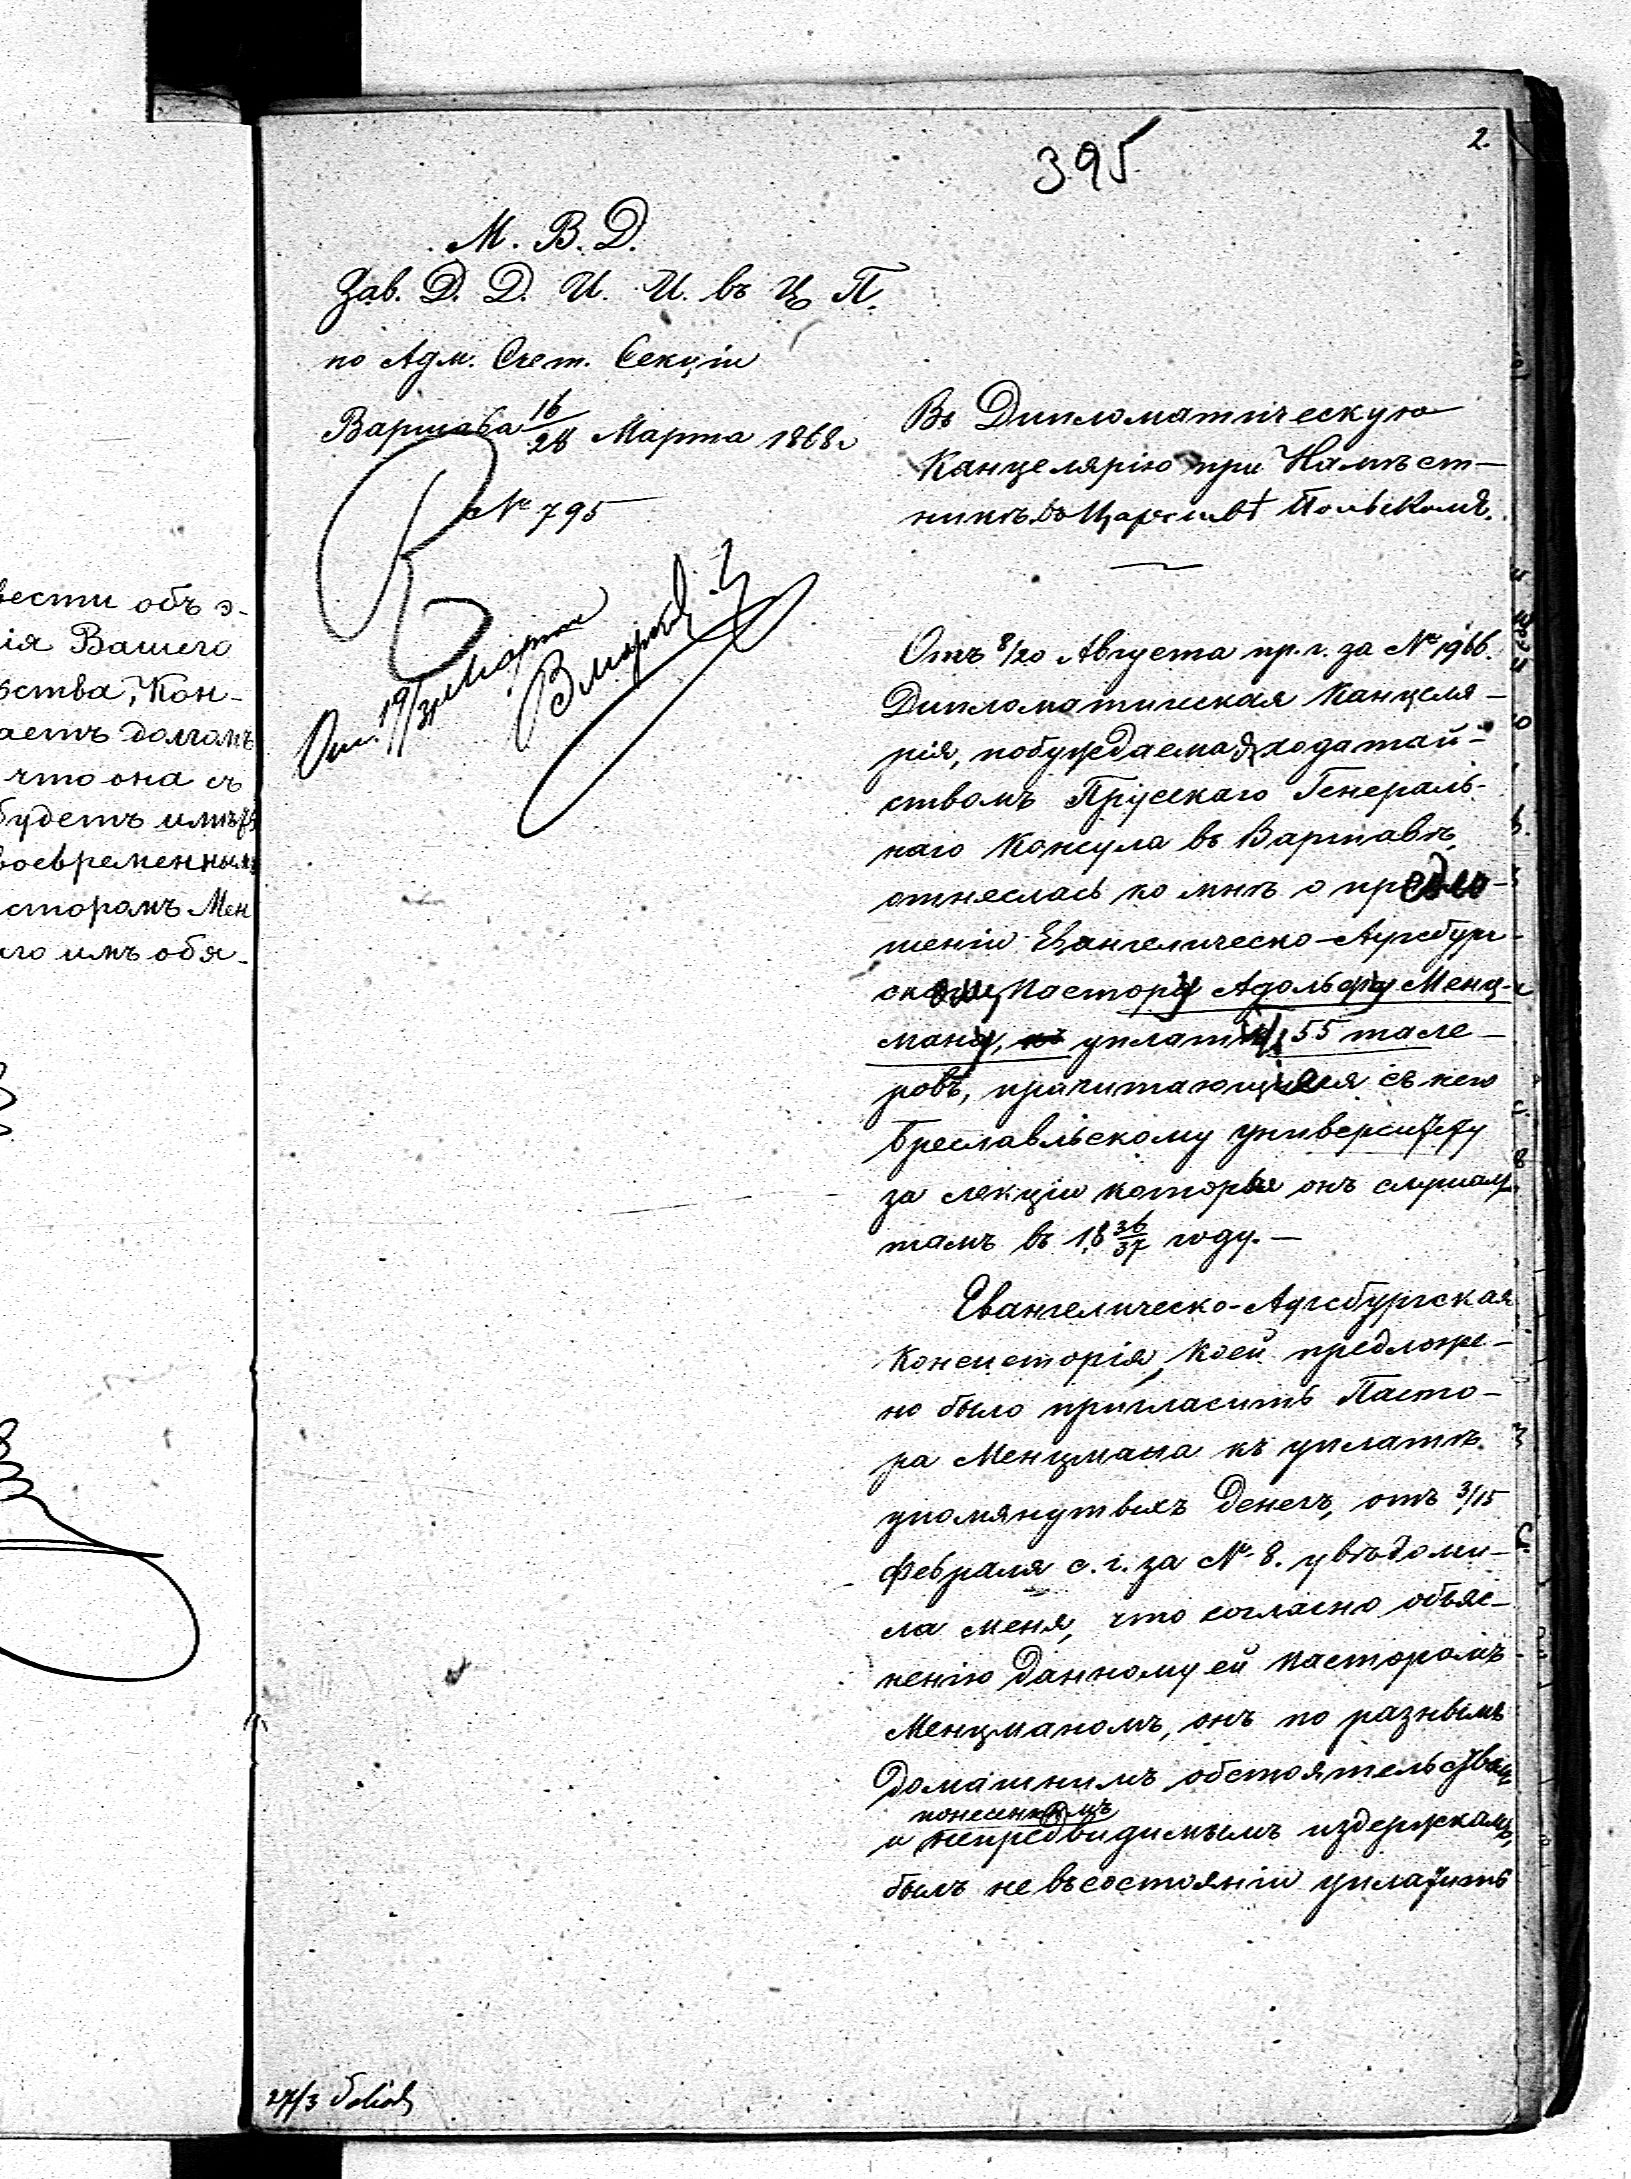 2.
395
М. В. Д.
Зав. Д. Д. И. И. въ Ц. П.
по Адм. Счет. Секціи
Варшава 16/28 Марта 1868 г.
№ 795
От. 19/31 Марта
Въ Дипломатическую
Канцелярію при Намѣст-
никѣ въ Царствѣ Польскомъ.
Отъ 8/20 Августа пр. г. за № 1966.
Дипломатическая Канцеля-
рія, побуждаемая ходатай-
ствомъ Прусскаго Генераль-
наго Консула въ Варшавѣ,
отнеслась ко мнѣ о предло-
женіи Евангелическо-Аугсбург-
скому Пастору Адольфу Менц-
ману, къ уплатѣ 55 тале-
ровъ, причитающихся съ него
Бреславльскому университету
за лекціи которые онъ слушалъ
тамъ въ 18 36/37 году. —
Евангелическо-Аугсбургская
Консисторія, коей предложе-
но было пригласить Пасто-
ра Менцмана къ уплатѣ
упомянутыхъ денегъ, отъ 3/15
Февраля с. г. за № 8. увѣдоми-
ла меня, что согласно объяс-
ненію данному ей Пасторомъ
Менцманомъ, онъ по разнымъ
домашнимъ обстоятельствамъ
понесеннымъ
и непредвидимымъ издержкамъ,
былъ не въ состояніи уплатить
27/3
вести объ э-
ія Вашего
ства, Кон-
аетъ долгомъ
что она съ
будетъ имѣть
воевременнымъ
сторомъ Мен
го имъ обя-